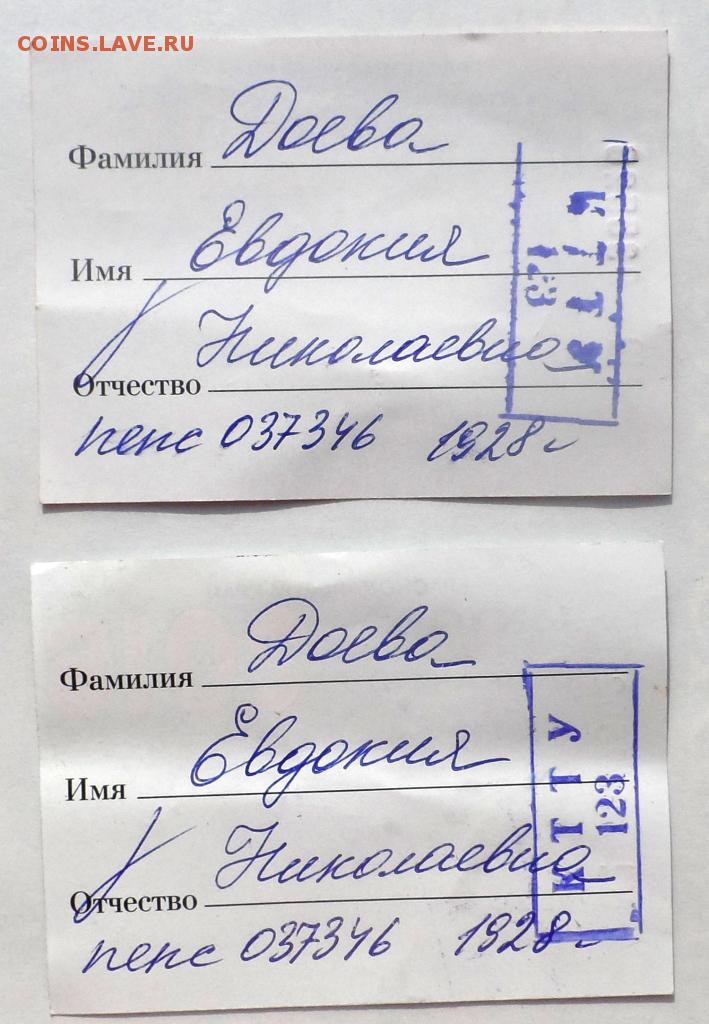 COINS.LAVE.RU
Фамилия Доева
Имя Евдокия
Отчество Николаевна
пенс 037346 1928г
КТТУ
123
Фамилия Доева
Имя Евдокия
Отчество Николаевна
пенс 037346 1928г
КТТУ
123